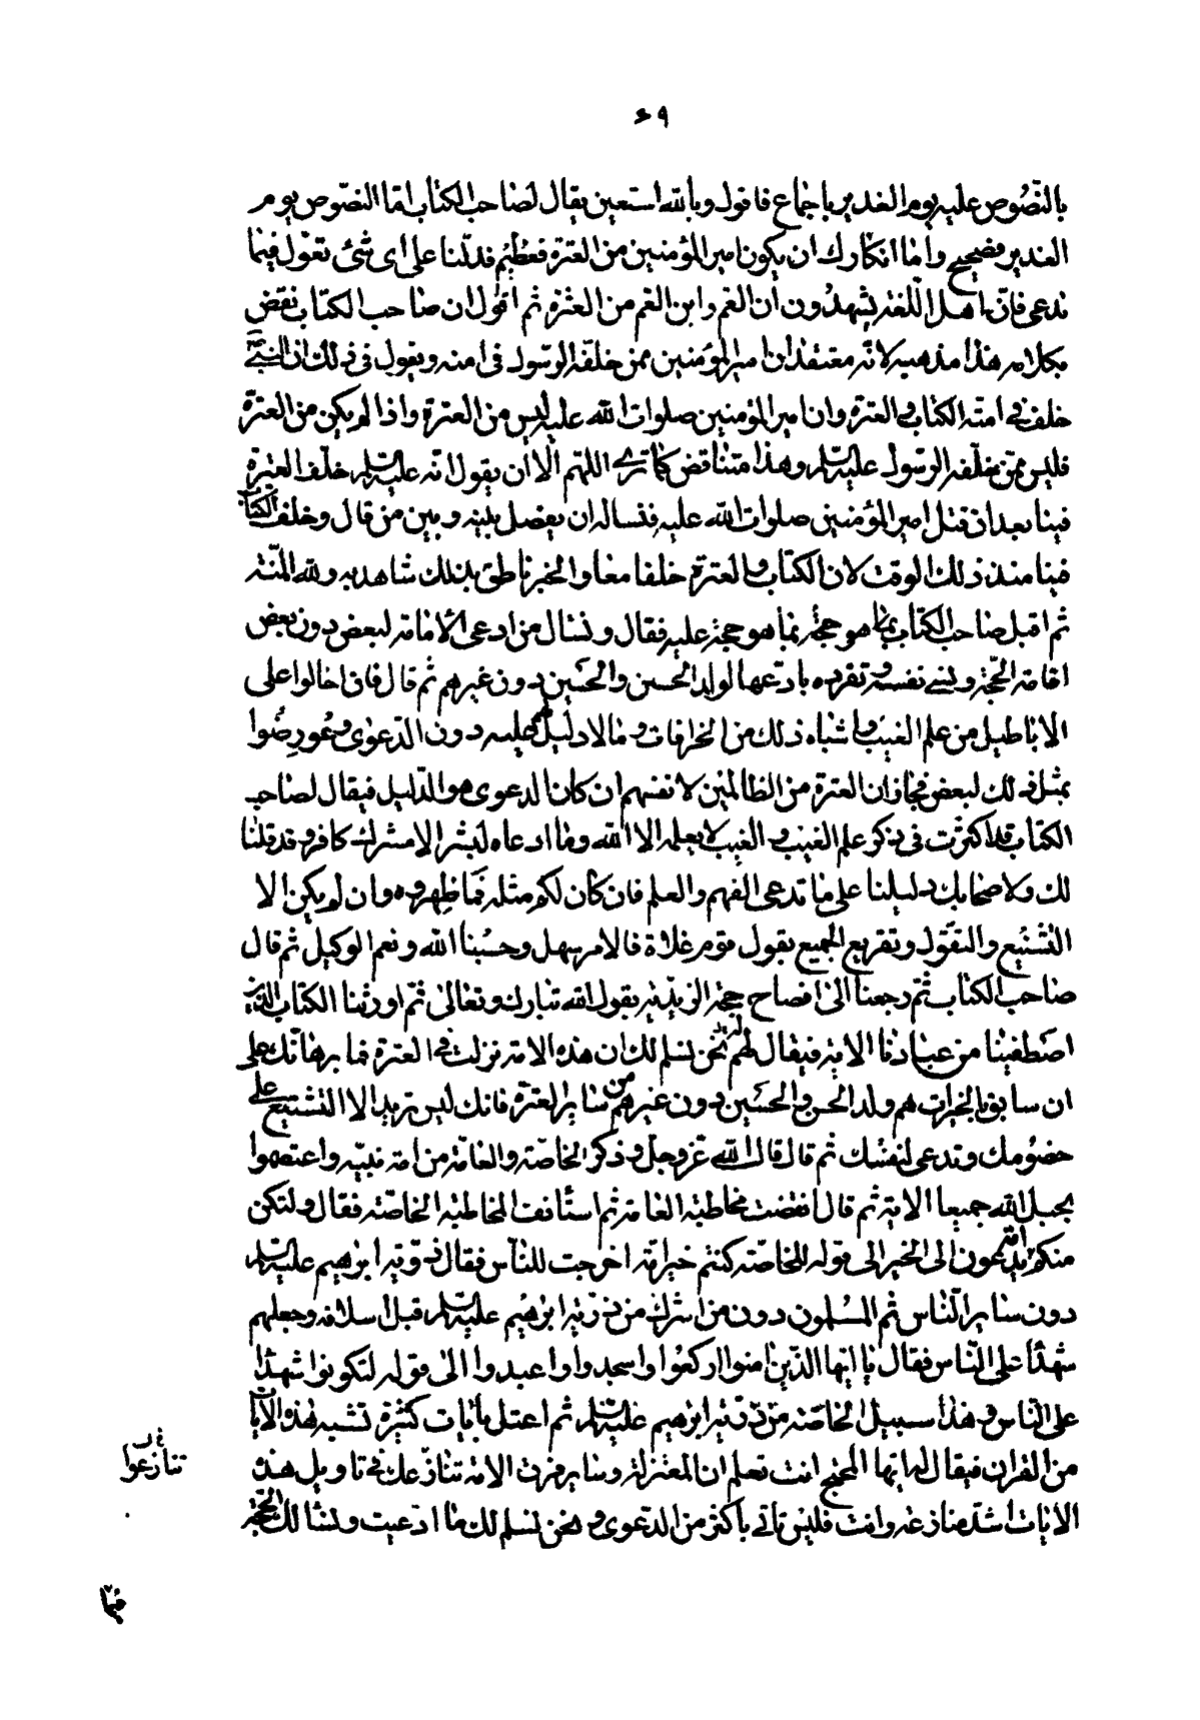 ٦٩
بالنّصُوص عليه يوم الغدير باجماع فاقول وبالله استعين يقال لصاحب الكتاب امّا النصّوص يوم
الغدير فصحيح وامّا انكارك ان يكون امير المؤمنين من العترة فعظيم فدلّنا على اى شئ تعوّل فيما
تدعى فانّ اهل اللّغة يشهدُون ان العم وابن العم من العترة ثم اقول ان صاحب الكتاب نقض
بكلامه هذا مذهبه لانّه معتقد ان امير المؤمنين ممن خلّفه الرسول فى امته ويقول فى ذلك ان النبيّ
خلف في امته الكتاب والعترة وان امير المؤمنين صلوات الله عليه ليس من العترة واذا لم يكن من العترة
فليس ممّن خلّفه الرسول عليه السّلم وهذا متناقض كما ترى اللهم الّا ان يقول انّه عليه السّلم خلّف العترة
فينا بعد ان قتل امير المؤمنين صلوات الله عليه فنساله ان يفصل بينه وبين من قال وخلف الكتاب
فينا منذ ذلك الوقت لان الكتاب والعترة خلفا معا والخبر ناطق بذلك شاهد به ولله المنّة
ثم اقبل صاحب الكتاب بما هو حجة عليه فقال ونسال من ادعى الامامة لبعض دون بعض
اقامة الحجّة ونسى نفسه وتفرده بادّعها لولد الحسن والحسين دون غيرهم ثم قال فان احالوا على
الاباطيل من علم الغيب واشباه ذلك من الخرافات وما لا دليل لهم عليه دون الدّعوى وعُورِضُوا
بمثل ذلك لبعض فجاز ان العترة من الظالمين لانفسهم ان كان الدعوى هو الدّليل فيقال لصاحب
الكتاب قد اكثرت فى ذكر علم الغيب والغيب لا يعلمه الا الله وما ادعاه لبشر الا مشرك كافر وقد قلنا
لك ولاصحابك دليلنا على ما تدعى الفهم والعلم فان كان لكم مثله فَما ظهروه وان لم يكن الا
التشنيع والتقوّل وتقريع الجميع بقول قوم غلاة فالامر سهل وحسبنا الله ونعم الوكيل ثم قال
صاحب الكتاب ثمّ رجعنا الى افصاح حجة الزيديّة بقول الله تبارك وتعالى ثمّ اورثنا الكتاب الذين
اصطفينا من عبادنا الاية فيقال لهم نحن نسلم لك ان هذه الاية نزلت فى العترة فما برهانك على
ان سابق بالخيرات هم ولد الحسن والحسين دون غيرهم من سائر العترة فانك ليس تريد الا التشنيع على
خصُومك وتدعى لنفسك ثم قال قال الله عزوجل وذكر الخاصّة والعامّة من امة نبيّه واعتصموا
بحبل الله جميعا الاية ثم قال انقضت مخاطبة العامة ثم استأنف مخاطبة الخاصّة فقال ولتكن
منكم امّة يدعون الى الخير الى قوله للخاصّة كنتم خير امّة اخرجت للنّاس فقال ذرّيّة ابرهيم عليه السّلم
دون سائر النّاس ثم المسُلمون دون من اشرك من ذرّيّة ابرهيم عليه السّلم قبل اسلامه وجعلهم
شهدًا على النّاس فقال يا ايّها الذّين امنوا اركعوا واسجدوا واعبدوا الى قوله لتكونوا شهدا
على الناس وهذا سبيل الخاصّة من ذريّة ابرهيم عليه السّلم ثم اعتل بايات كثيرة تشبه هذه الايات
من القران فيقال له ايّها المحتج انت تعلم ان المعتزلة وسائر فرق الامة تنازعك في تاويل هذه
الايات اشد منازعة وانت فليس تاتى باكثر من الدّعوى ونحن نسلم لك ما ادّعيت ونسألك الحجّة
تنازعوا
فيما